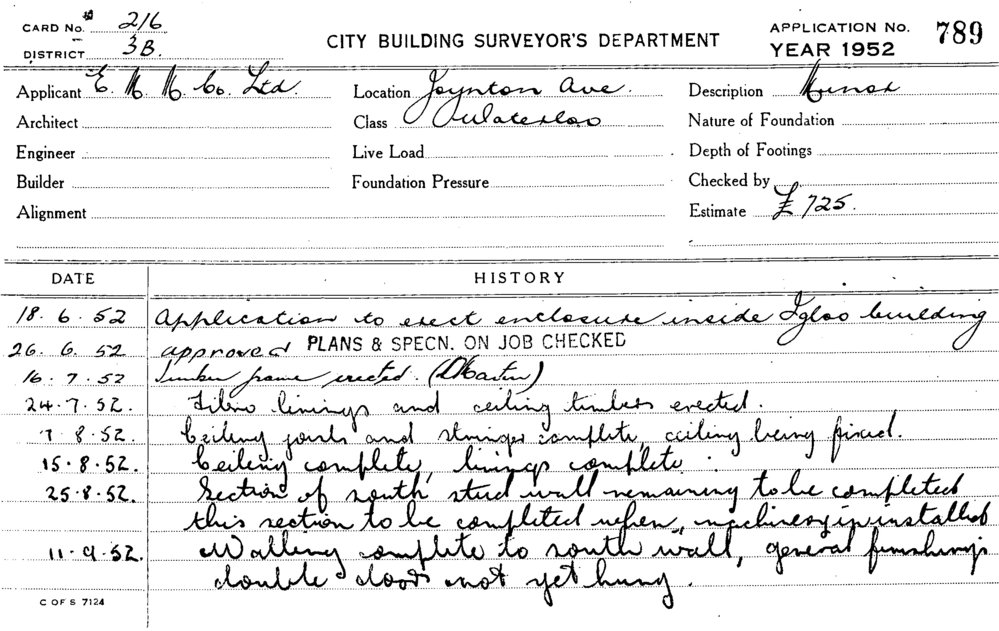 CARD No. 216
DISTRICT 3B.
CITY BUILDING SURVEYOR'S DEPARTMENT
APPLICATION No. 789
YEAR 1952
Applicant E. M. M. Co. Ltd. Location Joynton Ave. Description Minor
Architect Class Waterloo Nature of Foundation
Engineer Live Load Depth of Footings
Builder Foundation Pressure Checked by
Alignment Estimate £ 725.
DATE HISTORY
18. 6. 52 Application to erect enclosure inside Igloo building
26. 6. 52 approved PLANS & SPECN. ON JOB CHECKED
16. 7. 52 Timber frame erected.
24.7.52. Fibro linings and ceiling timbers erected.
7.8.52. Ceiling joists and stringer complete, ceiling being fixed.
15.8.52. Ceiling complete, linings complete.
25.8.52. Section of south stud wall remaining to be completed
this section to be completed when machinery is installed
11.9.52. Walling complete to south wall, general finishings
double doors not yet hung.
C OF S 7124